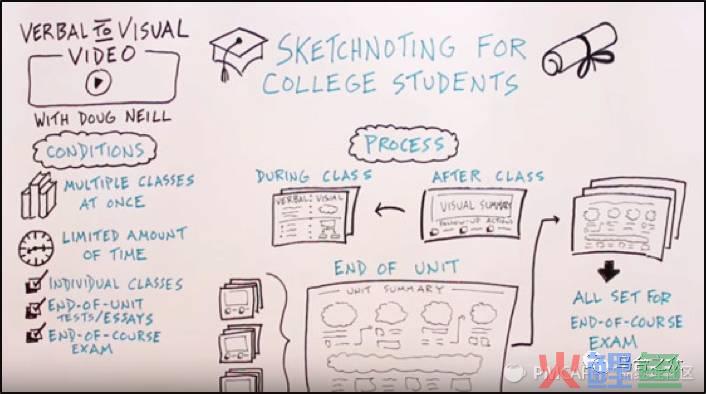 VERBAL TO VISUAL
VIDEO
WITH DOUG NEILL
SKETCHNOTING FOR
COLLEGE STUDENTS
CONDITIONS
MULTIPLE CLASSES
AT ONCE
LIMITED AMOUNT
OF TIME
INDIVIDUAL CLASSES
END-OF-UNIT
TESTS/ESSAYS
END-OF-COURSE
EXAM
PROCESS
DURING CLASS
VERBAL: VISUAL
AFTER CLASS
VISUAL SUMMARY
FOLLOW-UP ACTIONS
END OF UNIT
UNIT SUMMARY
ALL SET FOR
END-OF-COURSE
EXAM
火鲤鱼